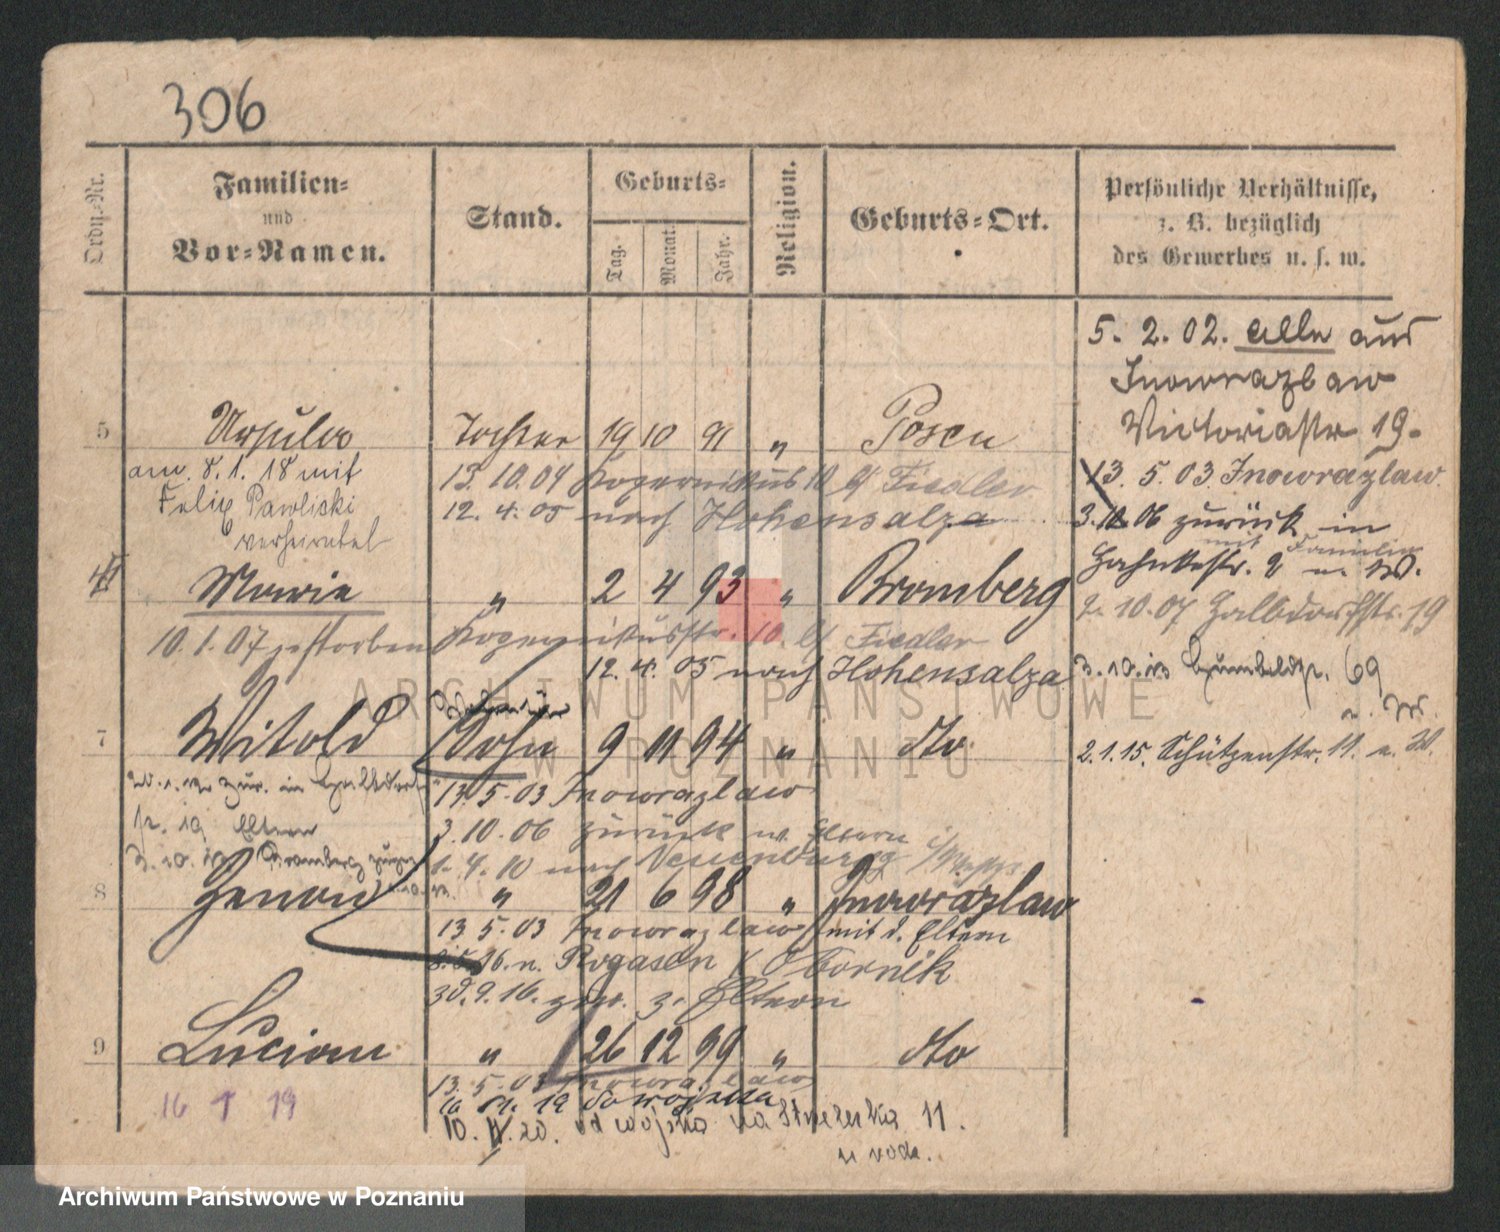 306
Ordn.-Nr.
Familien-
und
Vor-Namen.
Stand.
Geburts-
Tag.
Monat.
Jahr.
Religion.
Geburts-Ort.
Persönliche Verhältnisse,
z. B. bezüglich
des Gewerbes u. s. w.
5. 2. 02. alle aus
Inowrazlaw
Victoriastr 19.
5 Ursula Tochter 19 10 91 " Posen
am 8. 1. 18 mit
Felix Pawlicki
verheiratet
13. 10. 04 Kopernikus 10 b/ Fiedler
12. 4. 05 nach Hohensalza
13. 5. 03 Inowrazlaw
3. 10 06 zurück in
mit Familie
2. 10. 07 Halbdorfstr. 19
Marie " 2 4 93 " Bromberg
10. 1. 07 gestorben Kopernikusstr. 10. b/ Fiedler
12. 4. 05 nach Hohensalza
69
2. 1. 15. Schützenstr. 11. u. W.
7 Witold Sohn 9 11 94 " dto
zur. in Halbdorf
19 Eltern
Bromberg
13 5. 03 Inowrazlaw
3. 10. 06 zurück w. Eltern
1. 4. 10 nach Neuenburg
8 Zenon " 21 6 98 " Inowrazlaw
13 5. 03 Inowrazlaw mit d. Eltern
16. n. Rogasen / Obornik
30. 9. 16. zur. z. Eltern
9 Lucian " 26 12 99 " dto
16 1 19
13. 5. 03 Inowrazlaw
19 do wojska
10. IV. 20. od wojska na Strzelecka 11.
u rodz.
ARCHIWUM PAŃSTWOWE
W POZNANIU
Archiwum Państwowe w Poznaniu